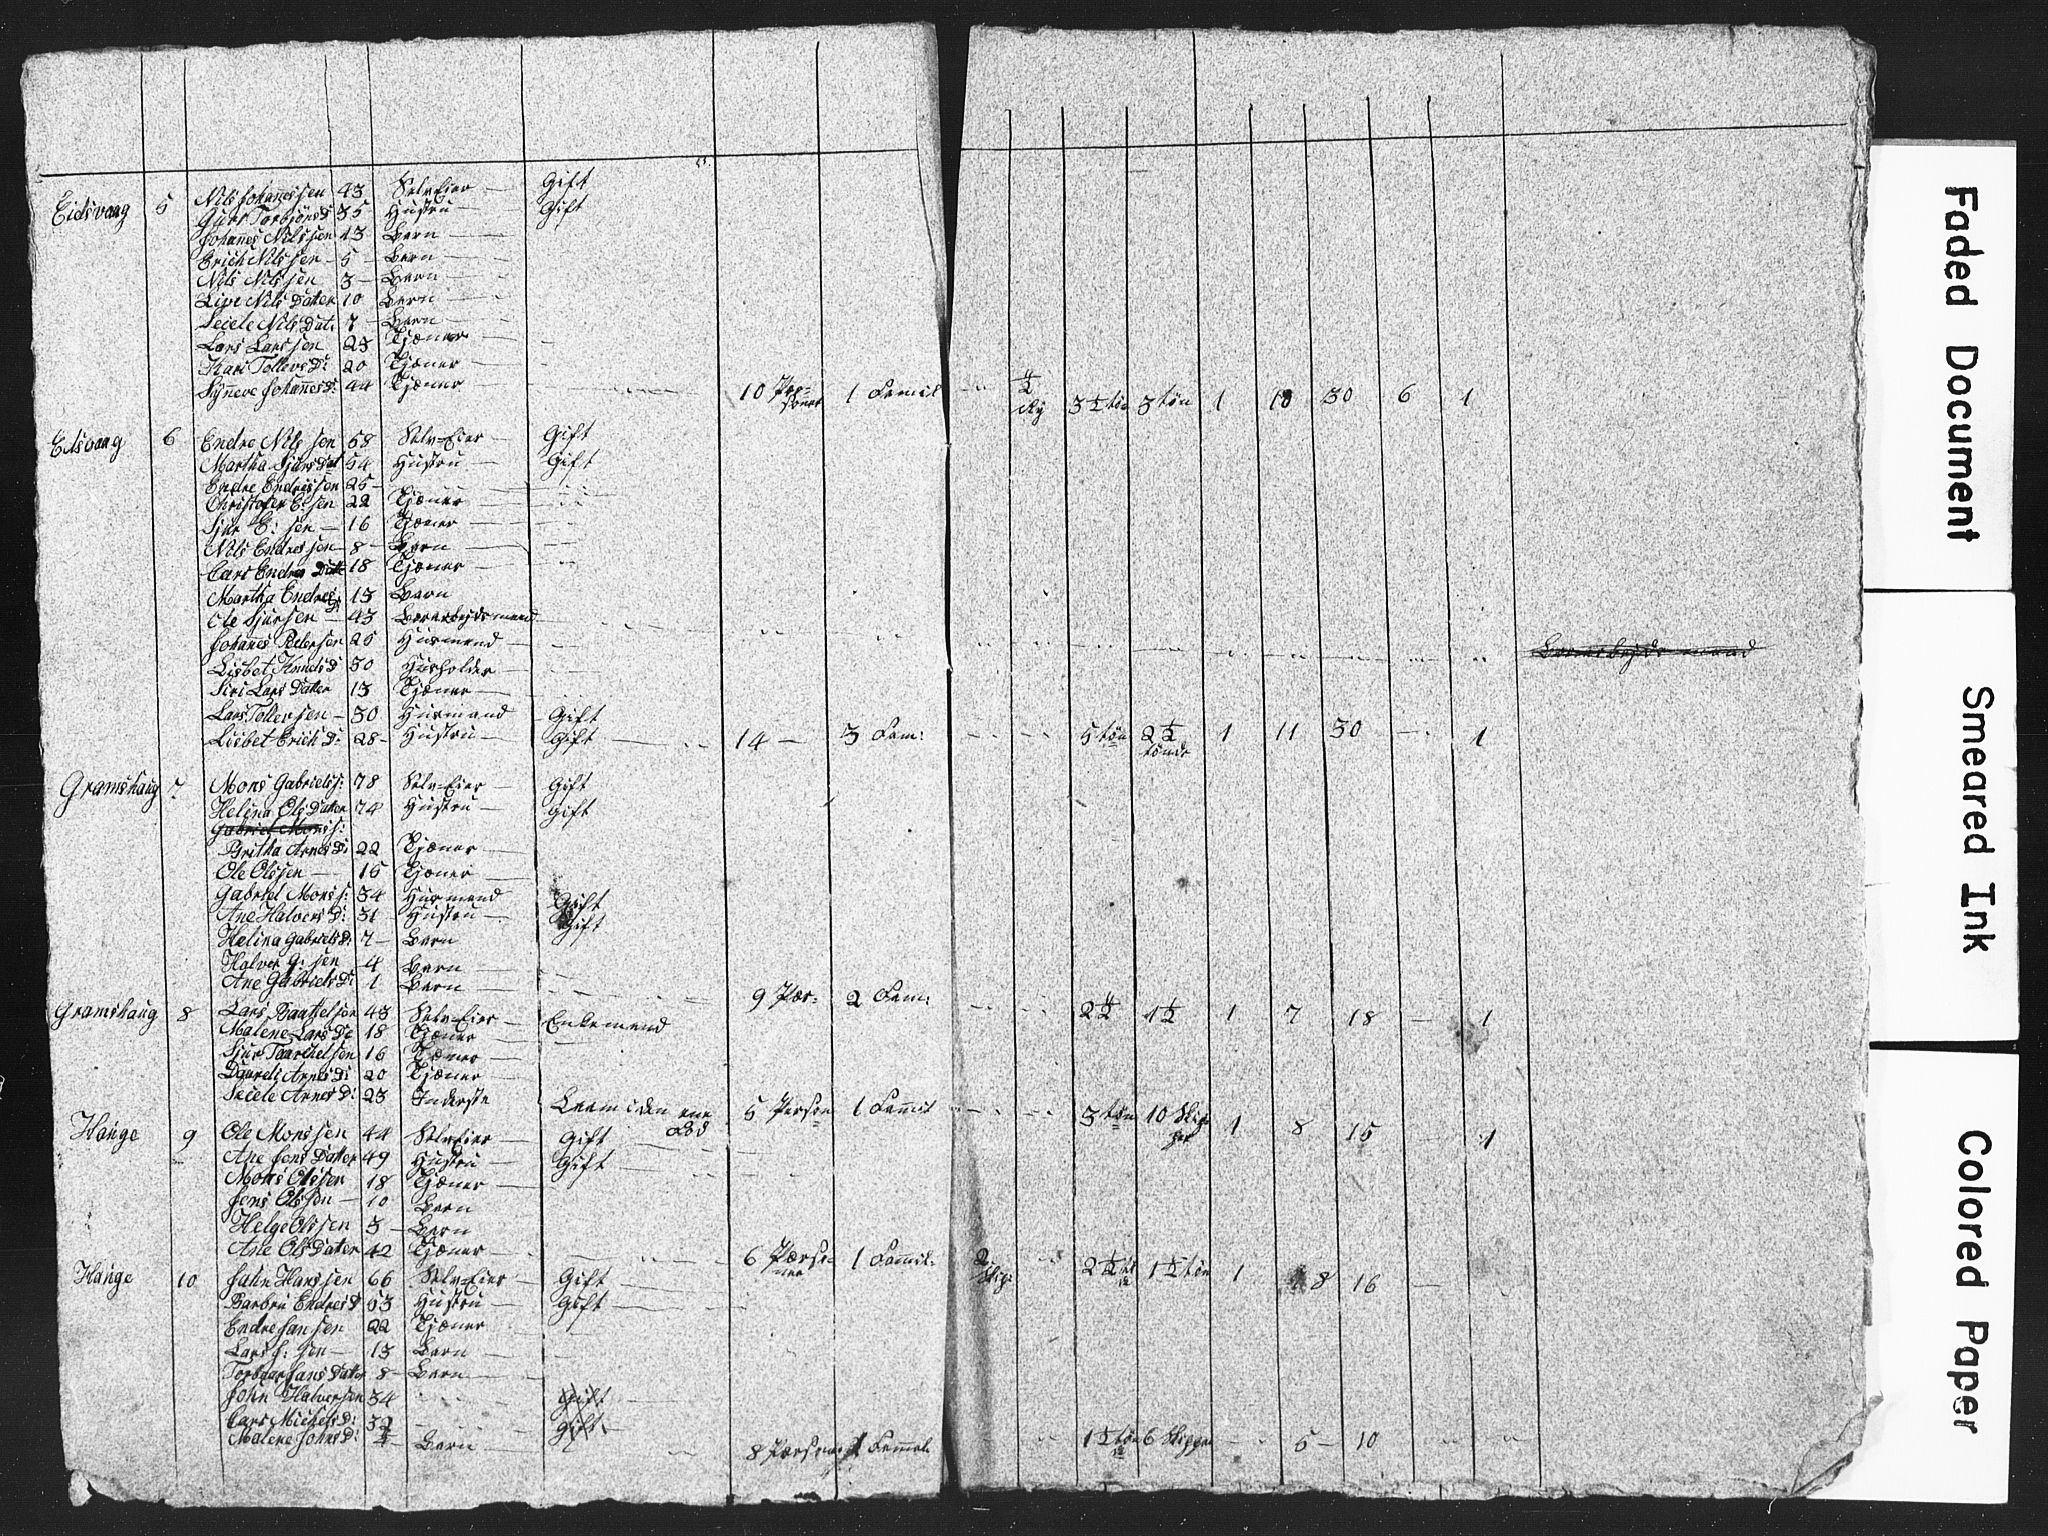 Eidsvaag 5 Nils Johannessen 43 Selv Eier Gift
Guri Torbiørns D 35 Hustru Gift
Johanes Nilssen 13 Barn
Erich Nilssen 5 Barn
Nils Nilssen 3 Barn
Live Nils Datter 10 Barn
Secele Nils Dat: 7 Barn
Lars Larssen 23 Tjæner
Kari Tollevs D: 20 Tjæner
Synneve Johannes D: 44 Tjæner 10 Per= 1 Famil 3½ tøn 3 tøn 1 10 30 6 1
soner
Eidsvaag 6 Endre Nilssen 58 Selv=Eier Gift
Martha Sjurs Dat 54 Hustru Gift
Endre Endressen 25
Christofer E:sen 22 Tjæner
Sjur E: sen 16 Tjæner
Nils Endressen 8 Barn
Cari Endres Datt 18 Tjæner
Martha Endres D: 13 Barn
Ole Sjursen 43
Johannes Pedersen 25 Husmand
Lisbet Knuds D 30 Husholder
Siri Lars Datter 13 Tjæner
Lars Tollevsen 30 Husmand Gift
Lisbet Erich D: 28 Hustru Gift 14 3 Fam: 5 tøn 2½ 1 11 30 1
tønde
Gramshaug 7 Mons Gabriels s: 78 Selv=Eier Gift
Helena Ols Datter 74 Hustru Gift
Gabriel Mons s:
Britha Arnes D: 22 Tjæner
Ole Olssen 15 Tjæner
Gabriel Mons s: 34 Husmand Gift
Ane Halvers D: 31 Hustru Gift
Helina Gabriels D: 7 Barn
Halver G: sen 4 Barn
Ane Gabriels D: 1 Barn 9 Per: 2 Fam: 2½ 1½ 1 7 18 1
Gramshaug 8 Lars 43 Selv=Eier Enkemand
Malene Lars D 18 Tjæner
Sjur 16 Tjæner
Arnes D: 20 Tjæner
Secele Arnes D: 23 Inderste 5 Person 1 Famil 3 tøn 10 Skip= 1 8 15 1
per
Hauge 9 Ole Monssen 44 Selv=Eier Gift
Ane Jens Datter 49 Hustru Gift
Mons Olssen 18 Tjæner
Jens Olssen 10 Barn
Helge Olssen 3 Barn
Ane Ols Datter 42 Tjæner 6 Perso= 1 Famil: 2 2½ 1½ tøn 1 8 16
ner
Hauge 10 Jahn Hanssen 66 Selv=Eier Gift
Barbru Endres D 53 Hustru Gift
Endre Jansen 22 Tjæner
Lars J: sen 13 Barn
Jans Datter 8 Barn
John Halversen 34 Gift
Cari Michels D: 32 Gift
Malene Johns D: Barn 8 Personer 1 Famil 1½ tøn 6 5 10
Faded Document
Smeared Ink
Colored Paper